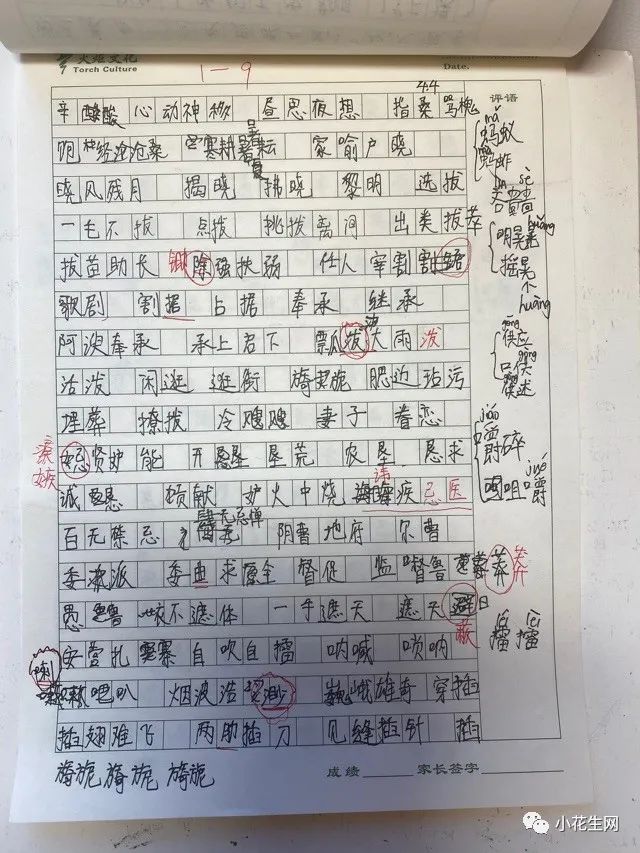 Torch Culture
Date.
1-9
4.4
评语
辛酸 心动神移 昼思夜想 指桑骂槐
饱经沧桑 寒耕暑耘 家喻户晓
晓风残月 揭晓 拂晓 黎明 选拔
一毛不拔 点拨 挑拨离间 出类拔萃
拔苗助长 锄 除强扶弱 任人宰割 割据
歌剧 割据 占据 奉承 继承
阿谀奉承 承上启下 瓢泼大雨 泼
活泼 闲逛 逛街 旖旎 肥 沾污
埋葬 撩拨 冷飕飕 妻子 眷恋
忌贤妒能 开垦 垦荒 农垦 恳求
诚恳 贡献 妒火中烧 讳疾忌医
百无禁忌 肆无忌惮 阴曹地府 尔曹
委派 委曲求全 督促 监督 鲁莽 莽
愚鲁 衣不遮体 一手遮天 遮天避日
蔽
安营扎寨 自吹自擂 呐喊 唢呐
喇 喇叭 烟波浩渺 巍峨雄奇 穿插
插翅难飞 两肋插刀 见缝插针 插
旖旎 旖旎 旖旎
mǎ 蚂蚁
mà 蚂蚱
sè
明晃晃 huǎng
摇晃 huàng
gōng 供应
gòng 供述
jiáo 嚼碎
咀嚼 jué
擂 擂
成绩 家长签字
小花生网